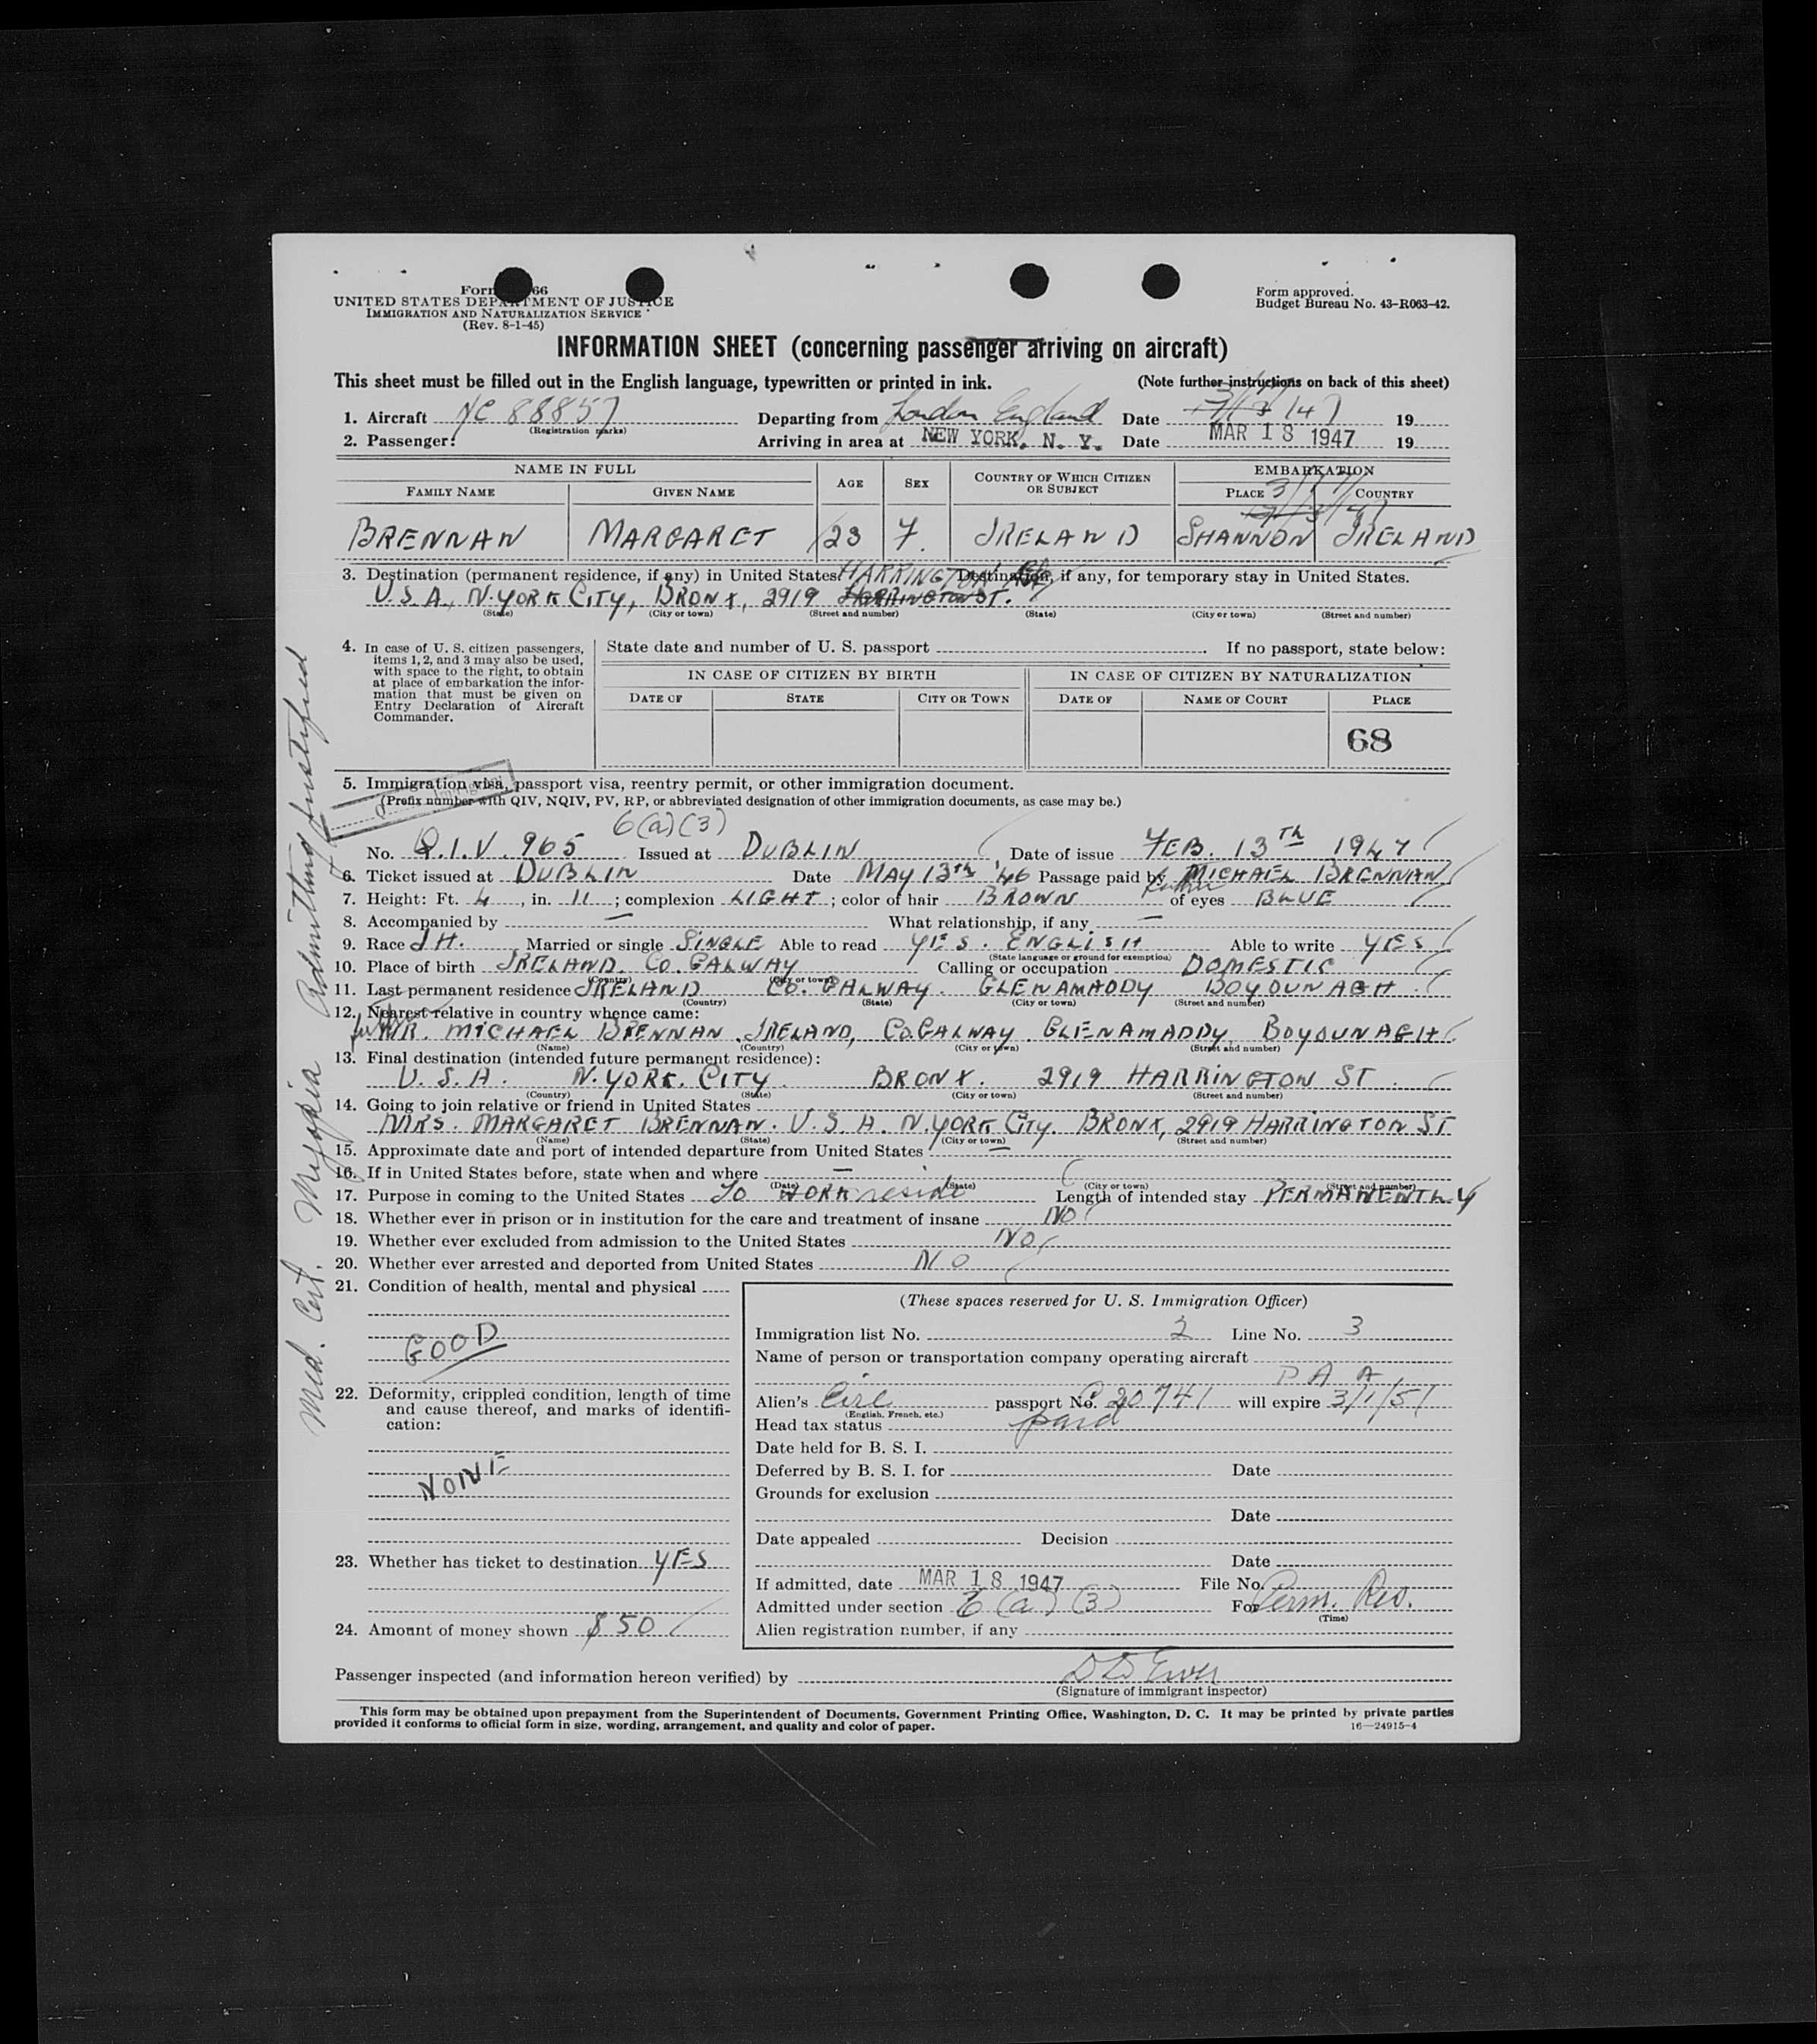 Form 66
UNITED STATES DEPARTMENT OF JUSTICE
IMMIGRATION AND NATURALIZATION SERVICE
(Rev. 8-1-45)
Form approved.
Budget Bureau No. 43-R063-42.
INFORMATION SHEET (concerning passenger arriving on aircraft)
This sheet must be filled out in the English language, typewritten or printed in ink. (Note further instructions on back of this sheet)
1. Aircraft NC 88857 Departing from London England Date 3/17/47 19
(Registration marks)
2. Passenger: Arriving in area at NEW YORK, N. Y. Date MAR 18 1947 19
NAME IN FULL AGE SEX COUNTRY OF WHICH CITIZEN OR SUBJECT EMBARKATION
FAMILY NAME GIVEN NAME PLACE COUNTRY
3/17/47
BRENNAN MARGARET 23 F. IRELAND SHANNON IRELAND
3. Destination (permanent residence, if any) in United States. HARRINGTON Destination, if any, for temporary stay in United States.
U.S.A., N.YORK CITY, BRONX, 2919 HARRINGTON ST.
(State) (City or town) (Street and number) (State) (City or town) (Street and number)
4. In case of U. S. citizen passengers, items 1, 2, and 3 may also be used, with space to the right, to obtain at place of embarkation the information that must be given on Entry Declaration of Aircraft Commander.
State date and number of U. S. passport If no passport, state below:
IN CASE OF CITIZEN BY BIRTH IN CASE OF CITIZEN BY NATURALIZATION
DATE OF STATE CITY OR TOWN DATE OF NAME OF COURT PLACE
68
5. Immigration visa, passport visa, reentry permit, or other immigration document.
(Prefix number with QIV, NQIV, PV, RP, or abbreviated designation of other immigration documents, as case may be.)
6(a)(3)
No. Q.I.V. 965 Issued at DUBLIN Date of issue FEB. 13TH 1947
6. Ticket issued at DUBLIN Date MAY 13TH '46 Passage paid by MICHAEL BRENNAN
father
7. Height: Ft. 4, in. 11; complexion LIGHT; color of hair BROWN of eyes BLUE
8. Accompanied by — What relationship, if any —
9. Race IH. Married or single SINGLE Able to read YES. ENGLISH Able to write YES
(State language or ground for exemption)
10. Place of birth IRELAND. CO. GALWAY Calling or occupation DOMESTIC
(Country) (City or town)
11. Last permanent residence IRELAND CO. GALWAY. GLENAMADDY BOYOUNAGH.
(Country) (State) (City or town) (Street and number)
12. Nearest relative in country whence came:
father MR. MICHAEL BRENNAN. IRELAND, CO.GALWAY. GLENAMADDY, BOYOUNAGH
(Name) (Country) (City or town) (Street and number)
13. Final destination (intended future permanent residence):
U.S.A. N.YORK. CITY. BRONX. 2919 HARRINGTON ST.
(Country) (State) (City or town) (Street and number)
14. Going to join relative or friend in United States
MRS. MARGARET BRENNAN. U.S.A. N.YORK CITY. BRONX, 2919 HARRINGTON ST
(Name) (State) (City or town) (Street and number)
15. Approximate date and port of intended departure from United States —
16. If in United States before, state when and where —
(Date) (State) (City or town) (Street and number)
17. Purpose in coming to the United States TO WORK reside Length of intended stay PERMANENTLY
18. Whether ever in prison or in institution for the care and treatment of insane NO
19. Whether ever excluded from admission to the United States NO
20. Whether ever arrested and deported from United States NO
21. Condition of health, mental and physical
GOOD
22. Deformity, crippled condition, length of time and cause thereof, and marks of identification:
NONE
23. Whether has ticket to destination YES
24. Amount of money shown $50
(These spaces reserved for U. S. Immigration Officer)
Immigration list No. 2 Line No. 3
Name of person or transportation company operating aircraft
P A A
Alien's Eire passport No. P 20741 will expire 3/1/51
(English, French, etc.)
Head tax status paid
Date held for B. S. I.
Deferred by B. S. I. for Date
Grounds for exclusion
Date
Date appealed Decision
Date
If admitted, date MAR 18 1947 File No.
Admitted under section 6 (a) (3) For Perm. Res.
(Time)
Alien registration number, if any
Passenger inspected (and information hereon verified) by
(Signature of immigrant inspector)
This form may be obtained upon prepayment from the Superintendent of Documents, Government Printing Office, Washington, D. C. It may be printed by private parties
provided it conforms to official form in size, wording, arrangement, and quality and color of paper. 16—24915-4
Med. Cert. Myopia Admitting justified